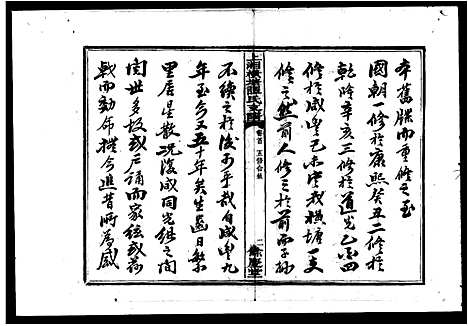 本舊牒而重修之至
國朝一修於康熙癸丑二修於
乾隆辛亥三修於道光乙巳四
修於咸豐己未實我橫塘一支
修之然前人修之於前而子孫
上湘橫塘顏氏支譜
卷首 五修合敘
二
不續之於後可乎哉自咸豐九
年至今又五十年矣生齒日繁
里居星散況復咸同光緒之間
閥世多故或戶誦而家絃或荷
戟而効命撫今追昔所爲感